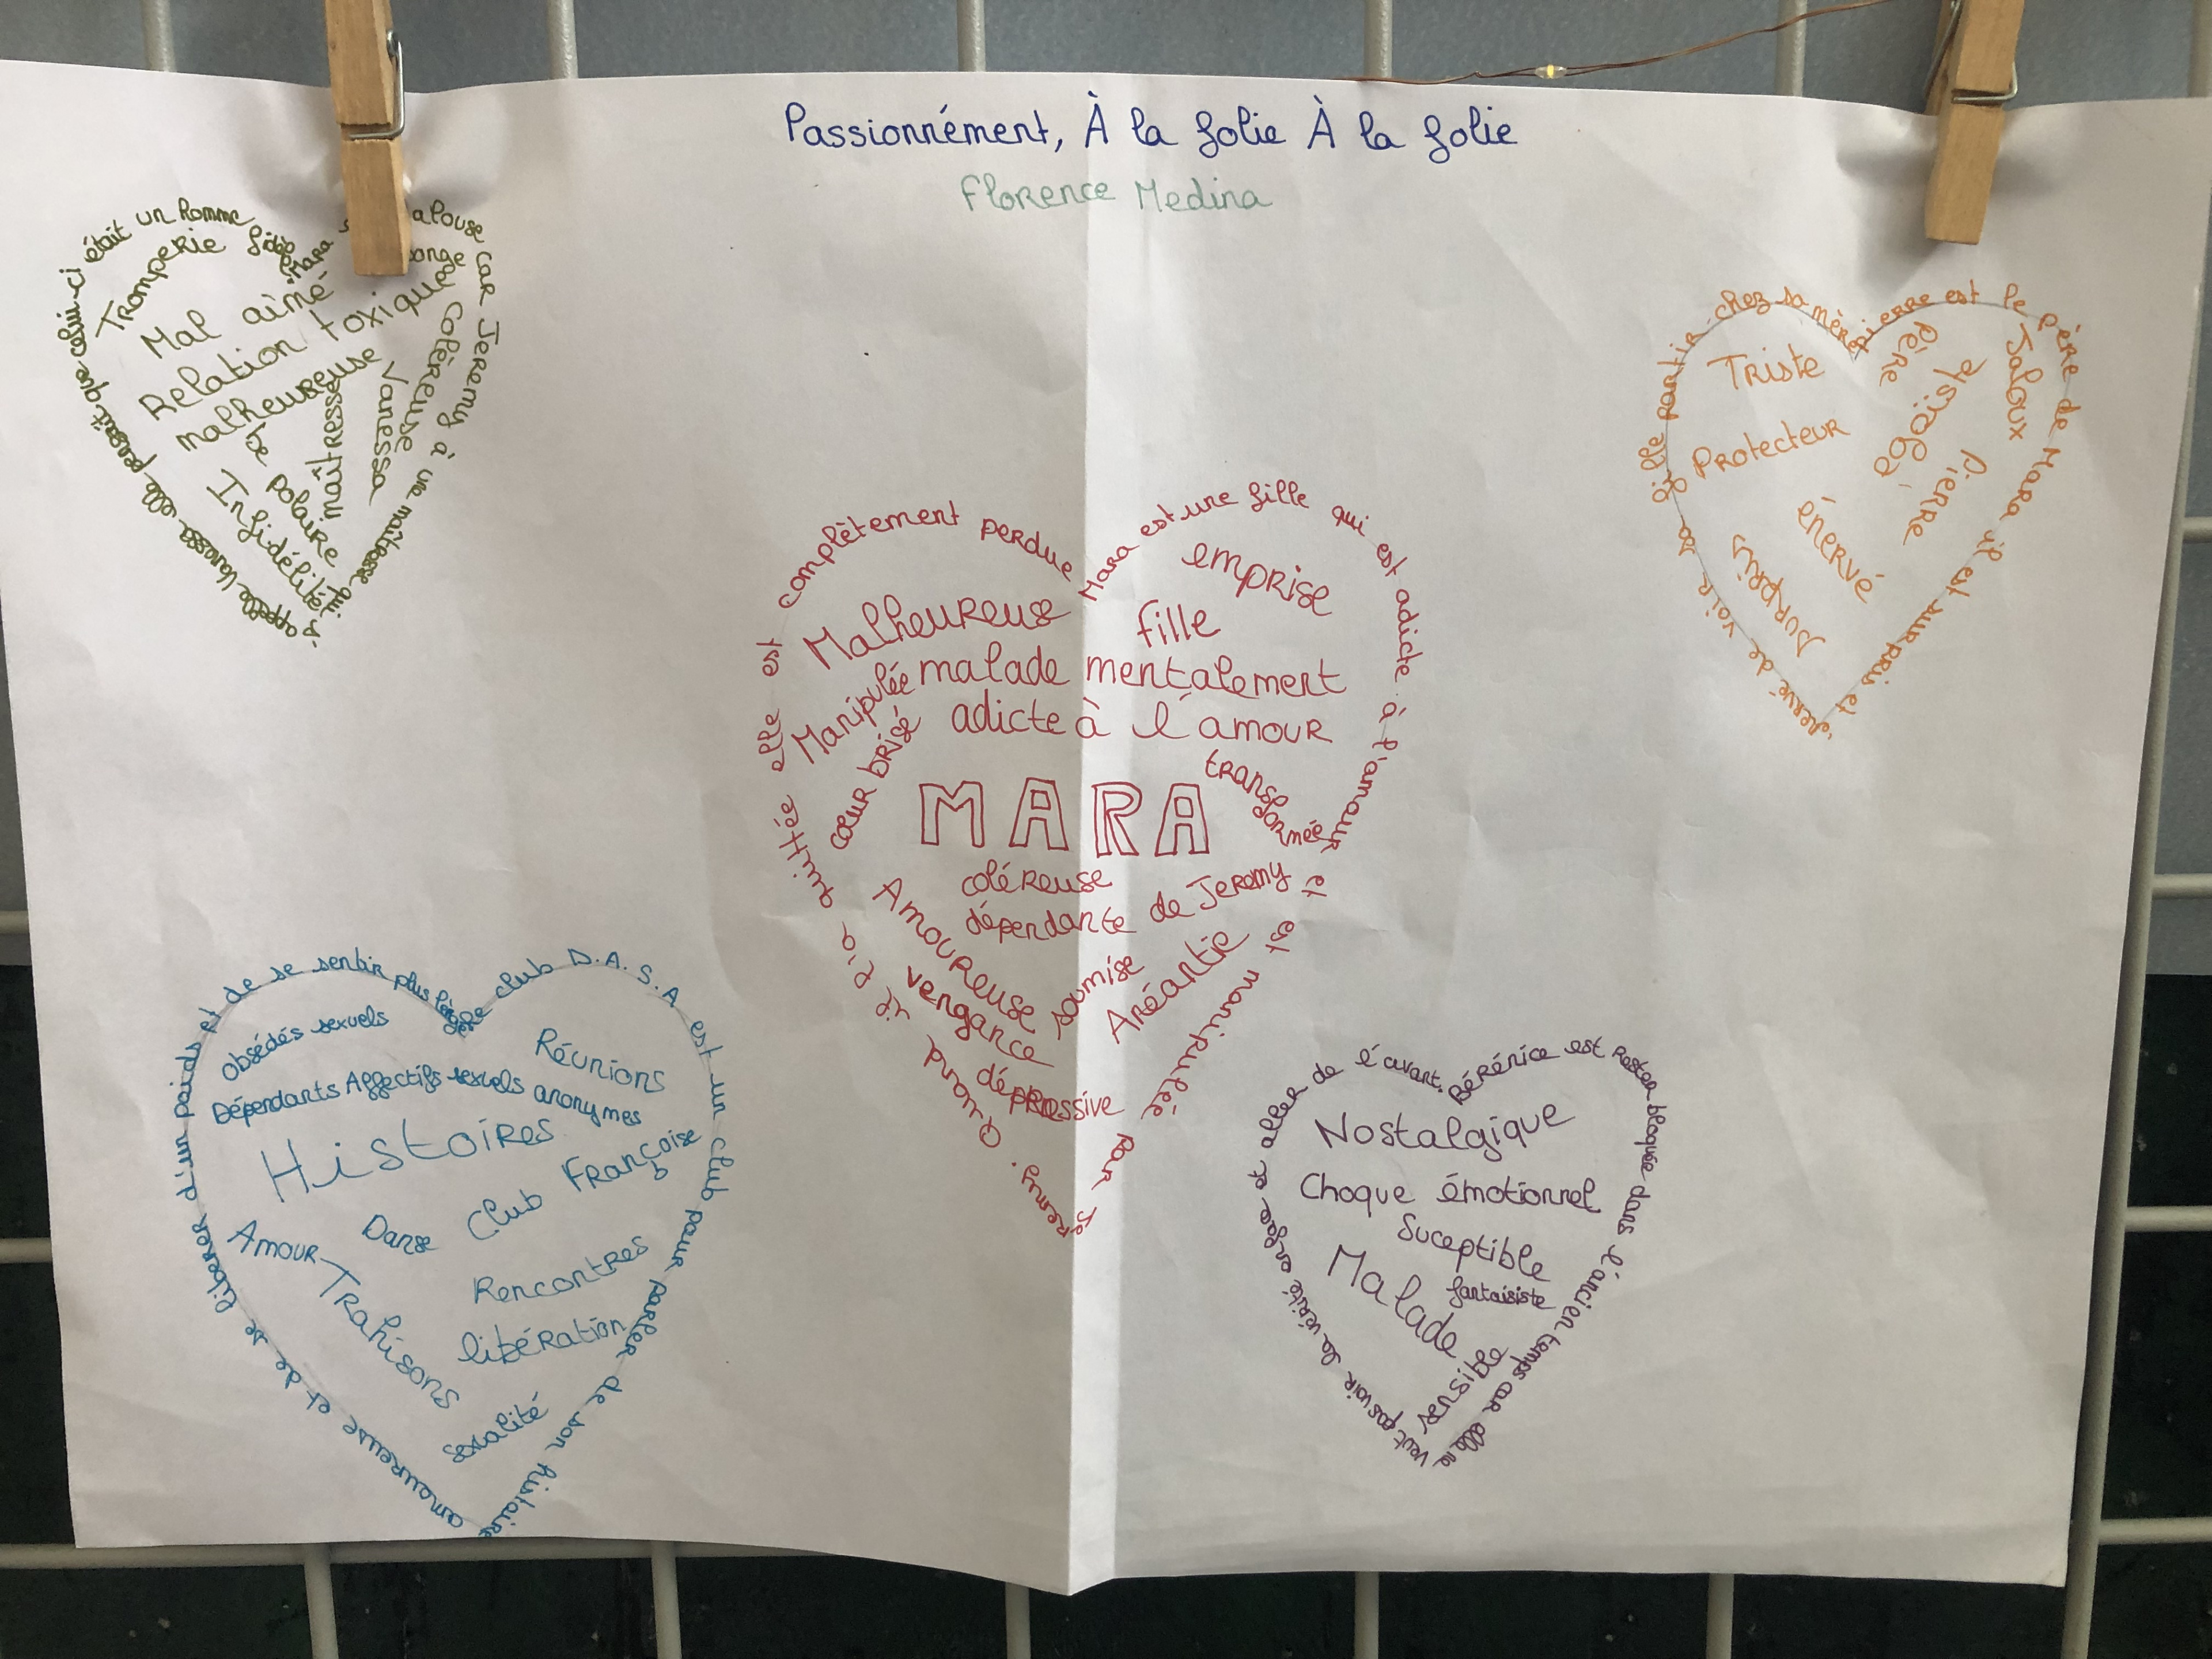 Passionnément, À la folie À la folie
Florence Medina
Mara
alouse car Jeremy à une maîtresse qui s'appelle Vanessa elle pensait que celui-ci était un homme fidèle.
Tromperie
Mal aimé
onge
Relation toxique
malheureuse
Colèreuse
Vanessa
maîtresse
polaire
Infidélité
Pierre est le père de Mara il est surpris et énervé de voir sa fille partir chez sa mère
Triste
Père
Jaloux
Protecteur
Pierre
énervé
surpris
Mara est une fille qui est adicte à l'amour et est manipulée par Jeremy. Quand il l'a quittée elle est complètement perdue
emprise
Malheureuse
fille
Manipulée
malade mentalement
cœur brisé
adicte à l'amour
transformée
MARA
coléreuse
dépendante de Jeremy
Amoureuse
soumise
Anéantie
vengance
dépressive
club D.A.S.A est un club pour parler de son histoire amoureuse et de se libérer d'un poids et de se sentir plus légère
Obsédés sexuels
Réunions
Dépendants Affectifs sexuels anonymes
Histoires
Française
Danse
Club
Amour
Trahisons
Rencontres
libération
sexalité
Bérénice est rester bloquée dans l'ancien temps car elle ne veut pas voir la vérité en face et aller de l'avant.
Nostalgique
Choque émotionnel
Suceptible
Malade
fantaisiste